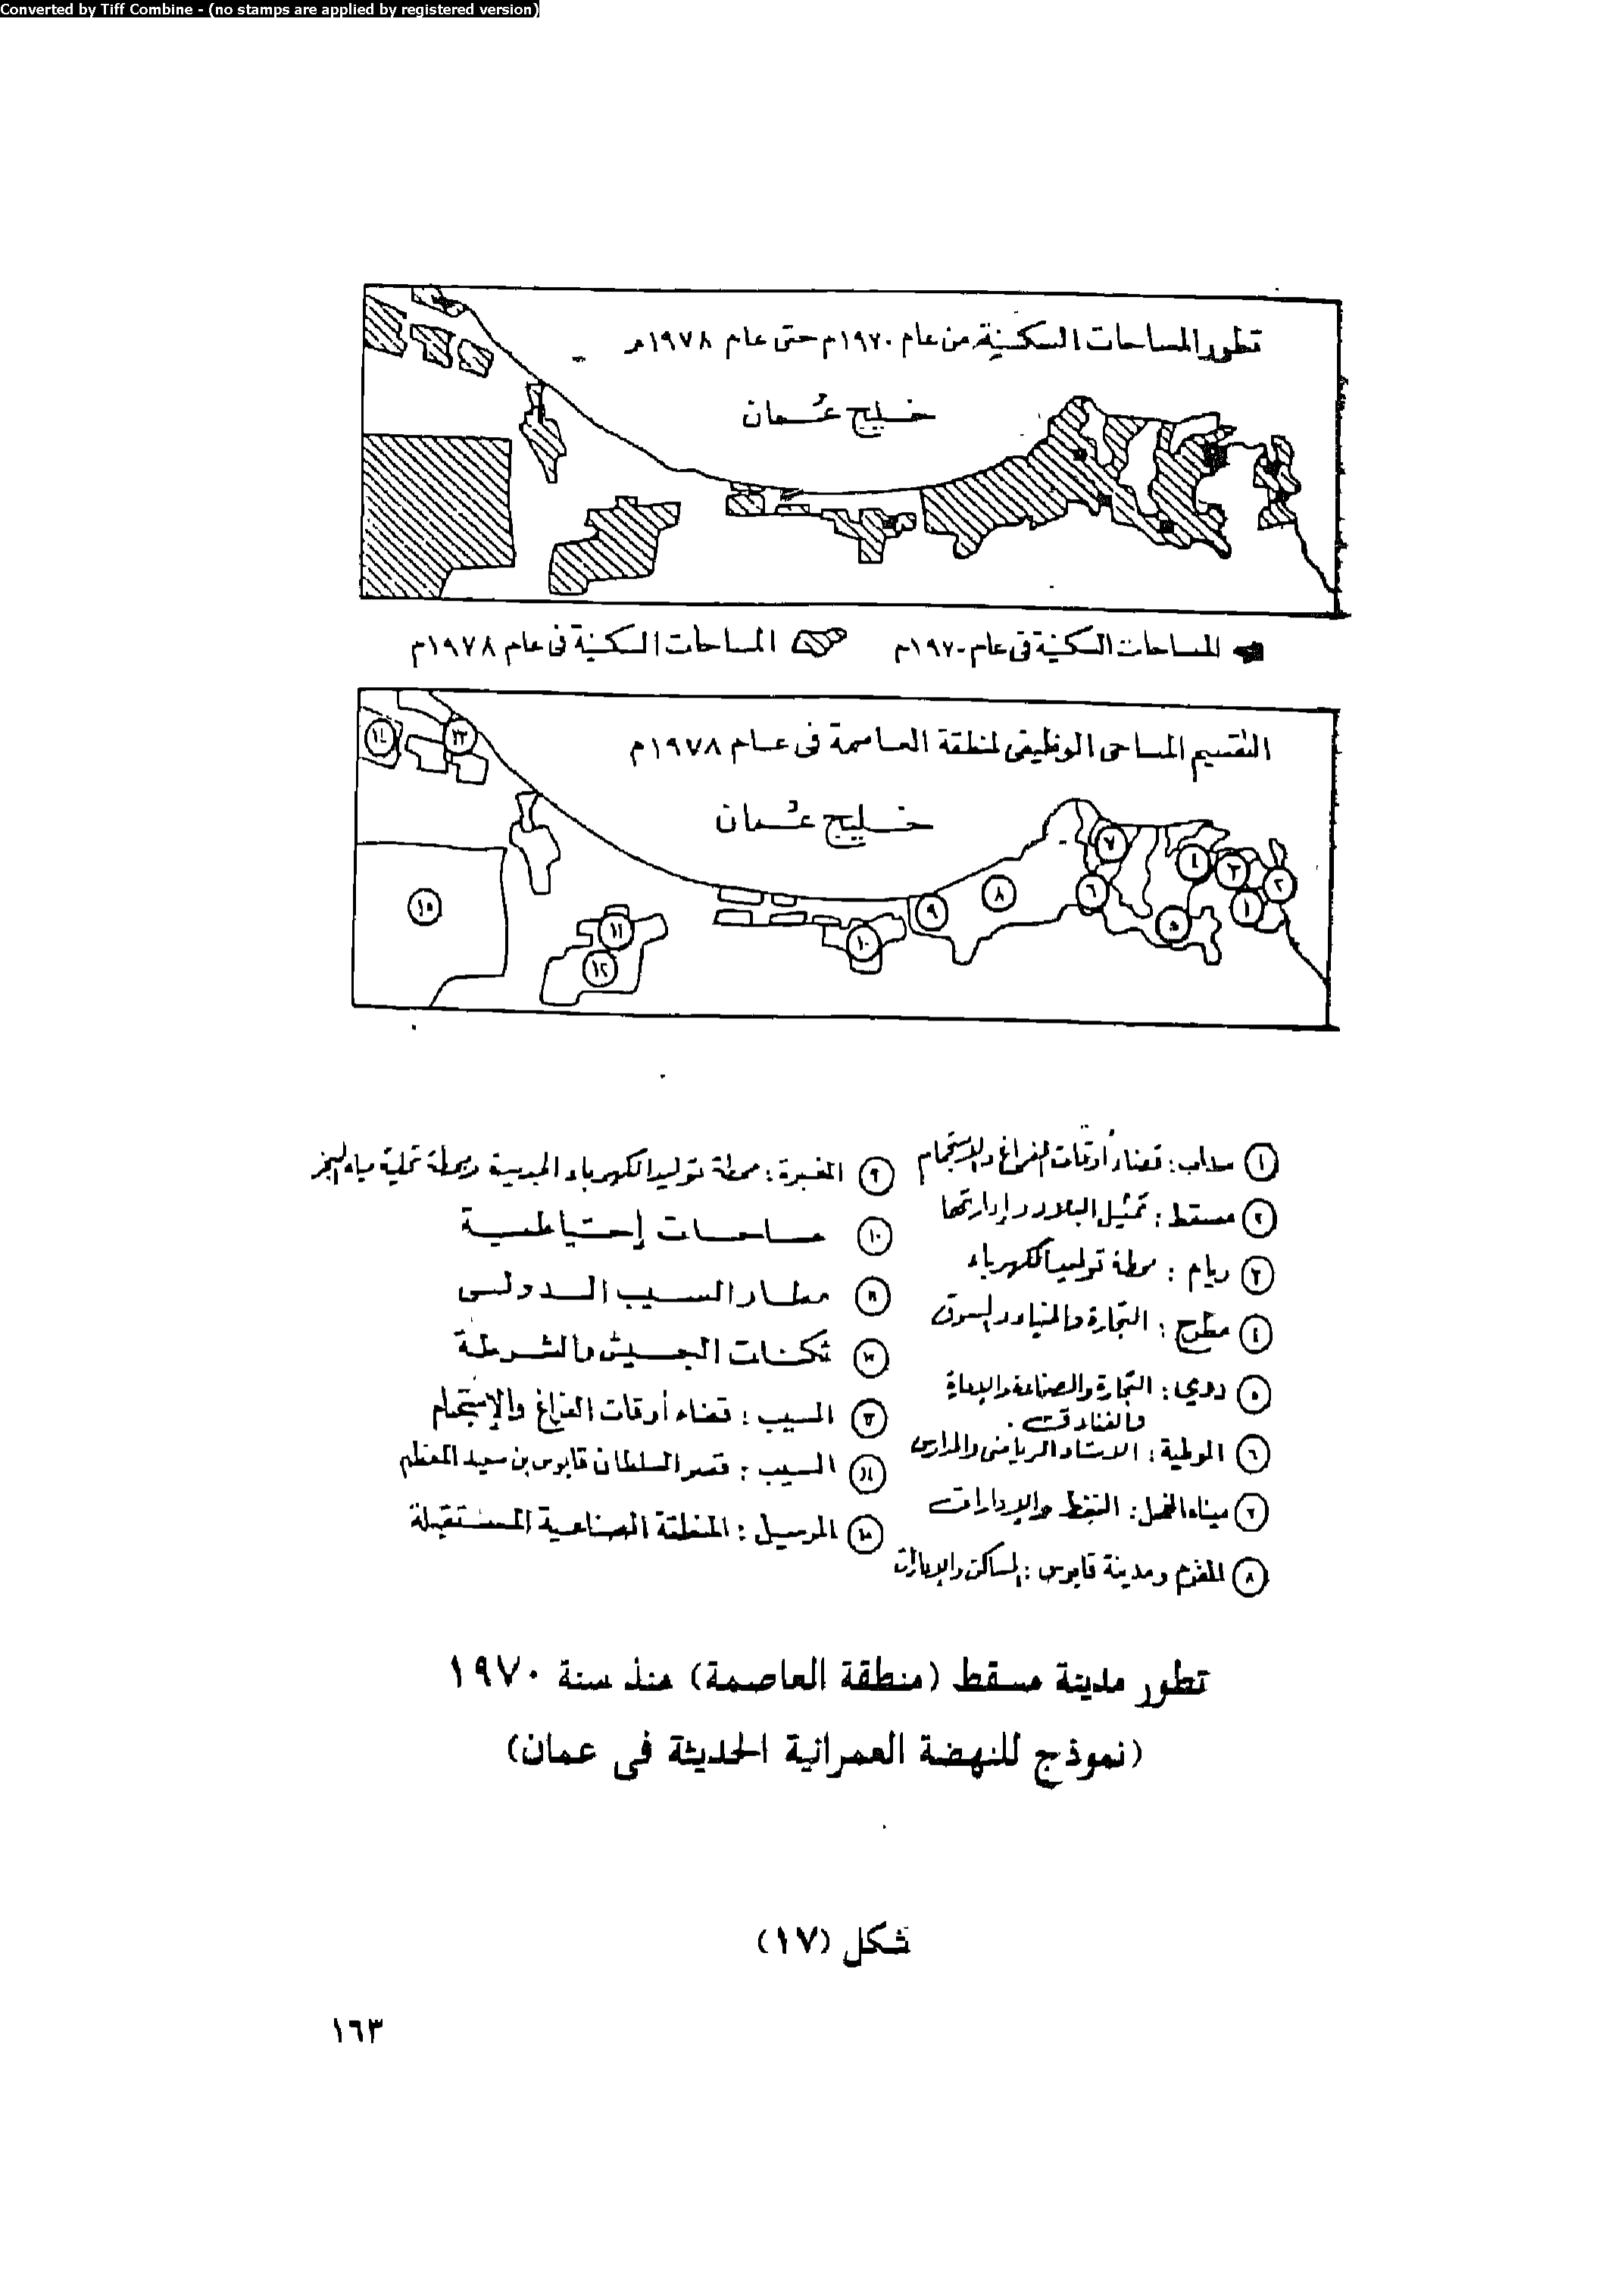 Converted by Tiff Combine - (no stamps are applied by registered version)
تطور المساحات السكنية من عام ١٩٧٠م حتى عام ١٩٧٨م
خليج عُمان
المساحات السكنية في عام ١٩٧٠م
المساحات السكنية في عام ١٩٧٨م
التقسيم المساحى الوظيفى لمنطقة العاصمة فى عام ١٩٧٨م
خليج عُمان
١٤ ١٣ ١٥ ١١ ١٢ ١٠ ٩ ٨ ٧ ٦ ٥ ٤ ٣ ٢ ١
١ سداب : قضاء أوقات الفراغ والإستجمام
٢ مسقط : تمثيل البلاد وإدارتها
٣ ريام : محطة توليد الكهرباء
٤ مطرح : التجارة والميناء والسوق
٥ روي : التجارة والصناعة والإدارة
والفنادق .
٦ الوطية : الاستاد الرياضى والمدارس
٧ ميناء الفحل : النفط والإدارات
٨ القرم ومدينة قابوس : المساكن والإدارات
٩ الغبرة : محطة توليد الكهرباء الجديدة ومحطة تحلية مياه البحر
١٠ مساحات إحتياطية
١١ مطار السيب الدولى
١٢ ثكنات الجيش والشرطة
١٣ السيب : قضاء أوقات الفراغ والإستجمام
١٤ السيب : قصر السلطان قابوس بن سعيد المعظم
١٥ الرسيل : المنطقة الصناعية المستقبلة
تطور مدينة مسقط (منطقة العاصمة) منذ سنة ١٩٧٠
(نموذج للنهضة العمرانية الحديثة فى عمان)
شكل (١٧)
١٦٣